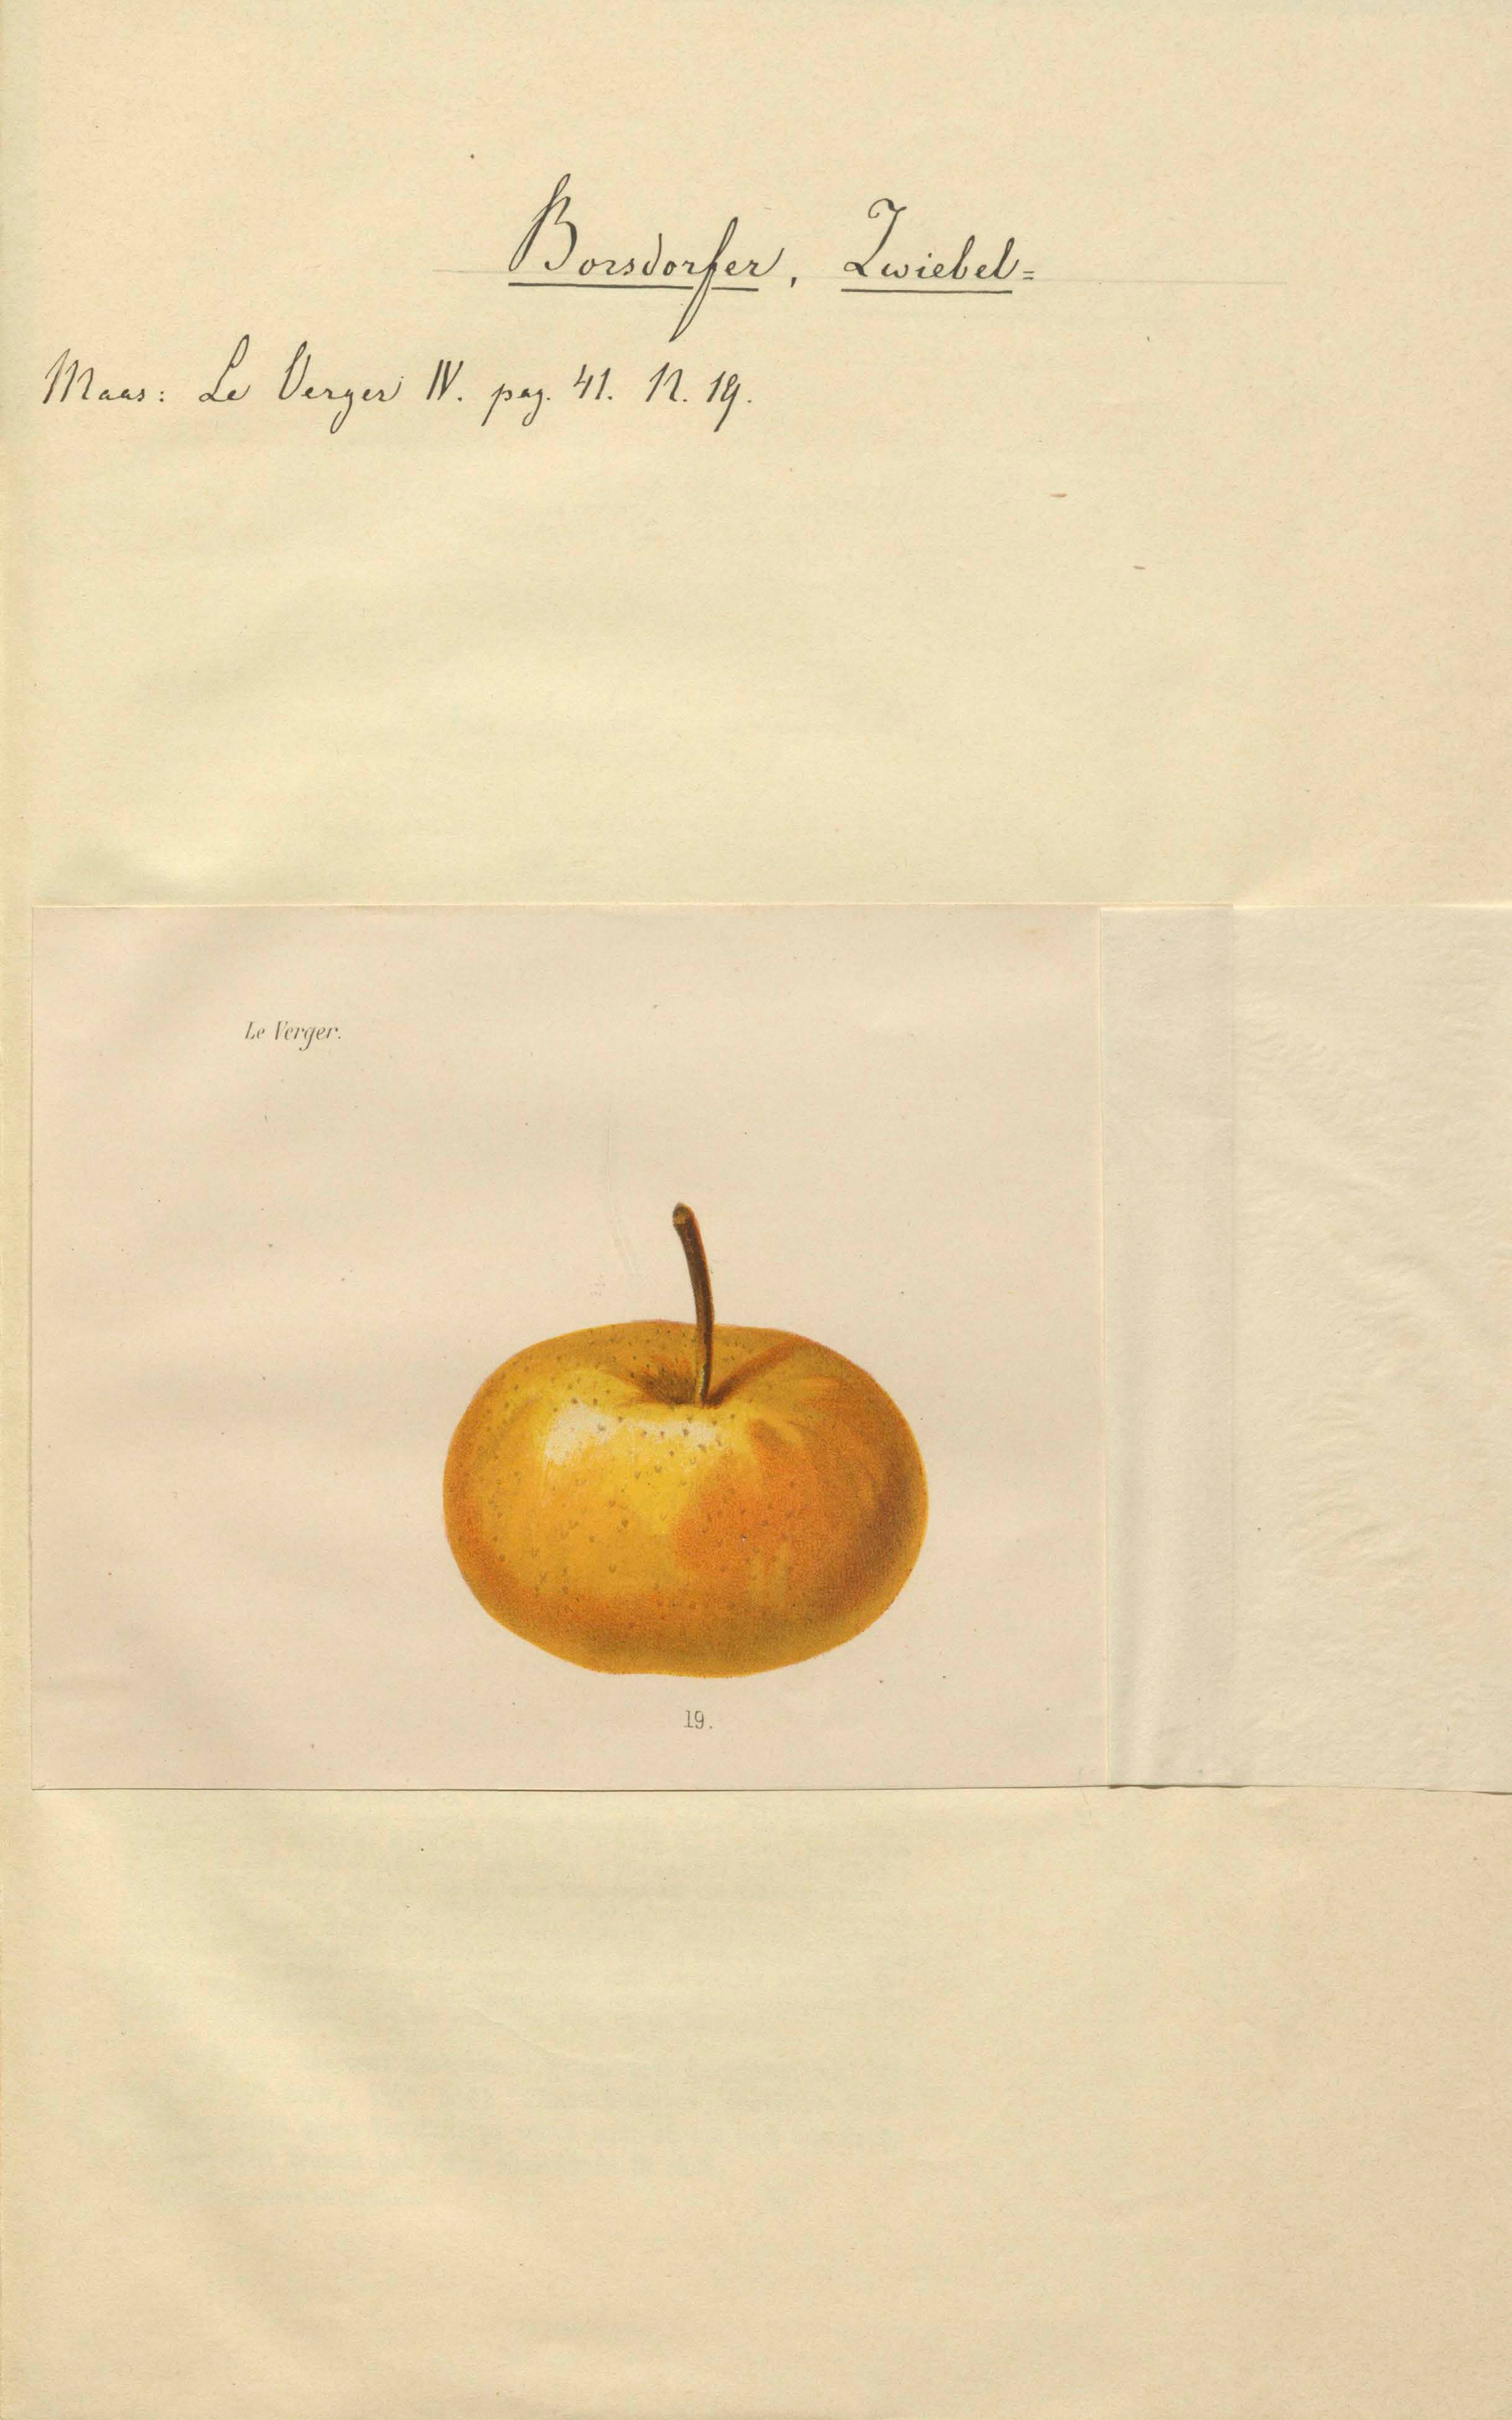 Borsdorfer, Zwiebel=
Maas: Le Verger IV. pag. 41. N. 19.
Le Verger.
19.